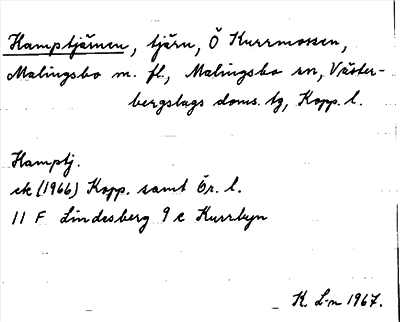 Hamptjärnen, tjärn, Ö Kurrmossen,
Malingsbo m. fl., Malingsbo sn, Väster-
bergslags doms. tg, Kopp. l.
Hamptj.
ek (1966) Kopp. samt Ör. l.
11 F Lindesberg 9 c Kurrbyn
K. L-n 1967.